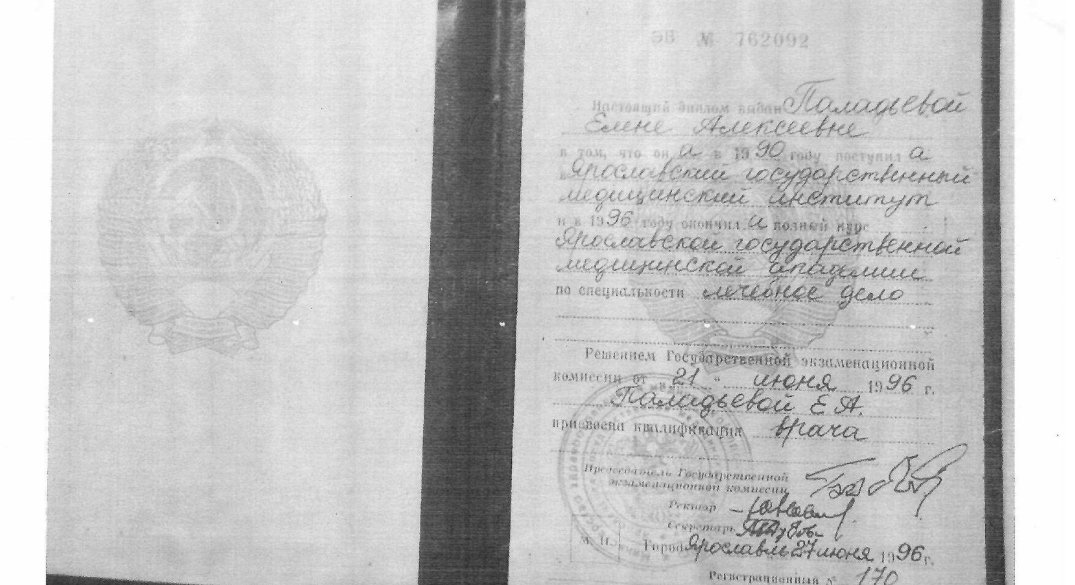 ЭВ № 762092
Настоящий диплом выдан Паладьевой
Елене Алексеевне
в том, что он а в 1990 году поступил а
Ярославский государственный
медицинский институт
и в 1996 году окончил а полный курс
Ярославской государственной
медицинской академии
по специальности лечебное дело
Решением Государственной экзаменационной
комиссии от 21 " июня 1996 г.
Паладьевой Е А.
присвоена квалификация врача
Председатель Государственной
экзаменационной комиссии
Ректор
Секретарь
М. П. Город Ярославль 27 июня 1996 г.
Регистрационный № 170